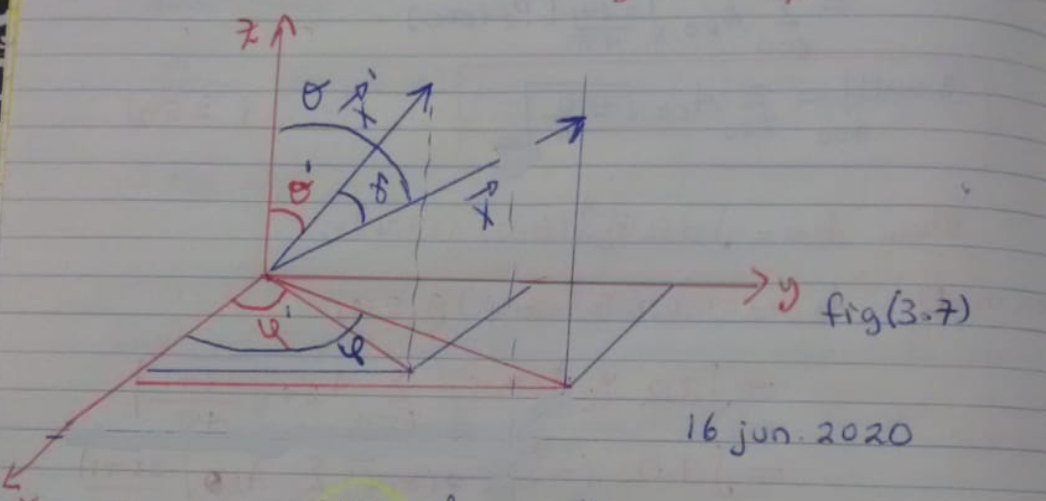 z
θ x⃗'
θ' γ
x⃗
y
fig(3.7)
φ' φ
16 jun. 2020